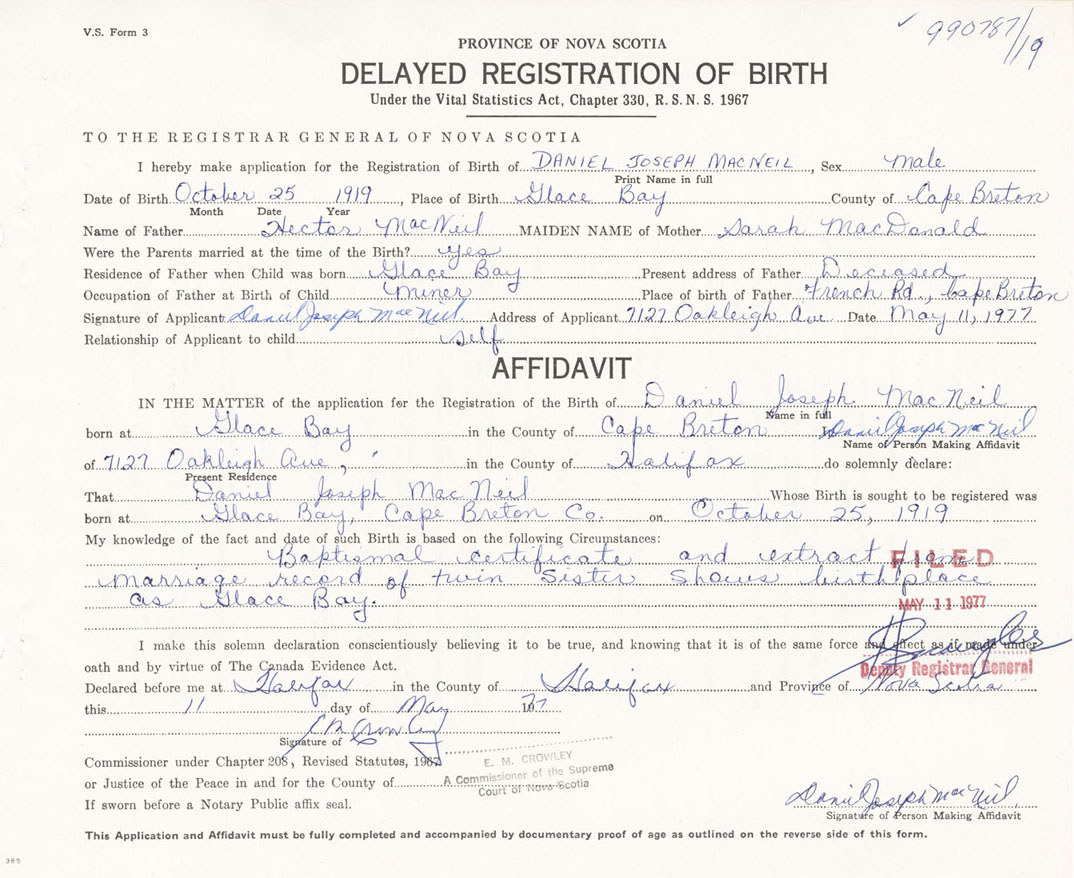 V.S. Form 3
990787/19
PROVINCE OF NOVA SCOTIA
DELAYED REGISTRATION OF BIRTH
Under the Vital Statistics Act, Chapter 330, R. S. N. S. 1967
TO THE REGISTRAR GENERAL OF NOVA SCOTIA
I hereby make application for the Registration of Birth of DANIEL JOSEPH MACNEIL, Sex male
Print Name in full
Date of Birth October 25 1919, Place of Birth Glace Bay County of Cape Breton
Month Date Year
Name of Father Hector MacNeil MAIDEN NAME of Mother Sarah MacDonald
Were the Parents married at the time of the Birth? yes
Residence of Father when Child was born Glace Bay Present address of Father Deceased
Occupation of Father at Birth of Child Miner Place of birth of Father French Rd., Cape Breton
Signature of Applicant Daniel Joseph MacNeil Address of Applicant 7127 Oakleigh Ave Date May 11, 1977
Relationship of Applicant to child self
AFFIDAVIT
IN THE MATTER of the application for the Registration of the Birth of Daniel Joseph MacNeil
Name in full
born at Glace Bay in the County of Cape Breton I, Daniel Joseph MacNeil
Name of Person Making Affidavit
of 7127 Oakleigh Ave, in the County of Halifax do solemnly declare:
Present Residence
That Daniel Joseph MacNeil Whose Birth is sought to be registered was
born at Glace Bay, Cape Breton Co. on October 25, 1919
My knowledge of the fact and date of such Birth is based on the following Circumstances:
Baptismal certificate and extract from
marriage record of twin Sister Shows birthplace
as Glace Bay.
FILED
MAY 11 1977
I make this solemn declaration conscientiously believing it to be true, and knowing that it is of the same force and effect as if made under
oath and by virtue of The Canada Evidence Act.
Deputy Registrar General
Declared before me at Halifax in the County of Halifax and Province of Nova Scotia
this 11 day of May 1977
Signature of
Commissioner under Chapter 208, Revised Statutes, 1967
E. M. CROWLEY
A Commissioner of the Supreme
Court of Nova Scotia
or Justice of the Peace in and for the County of
If sworn before a Notary Public affix seal.
Daniel Joseph MacNeil
Signature of Person Making Affidavit
This Application and Affidavit must be fully completed and accompanied by documentary proof of age as outlined on the reverse side of this form.